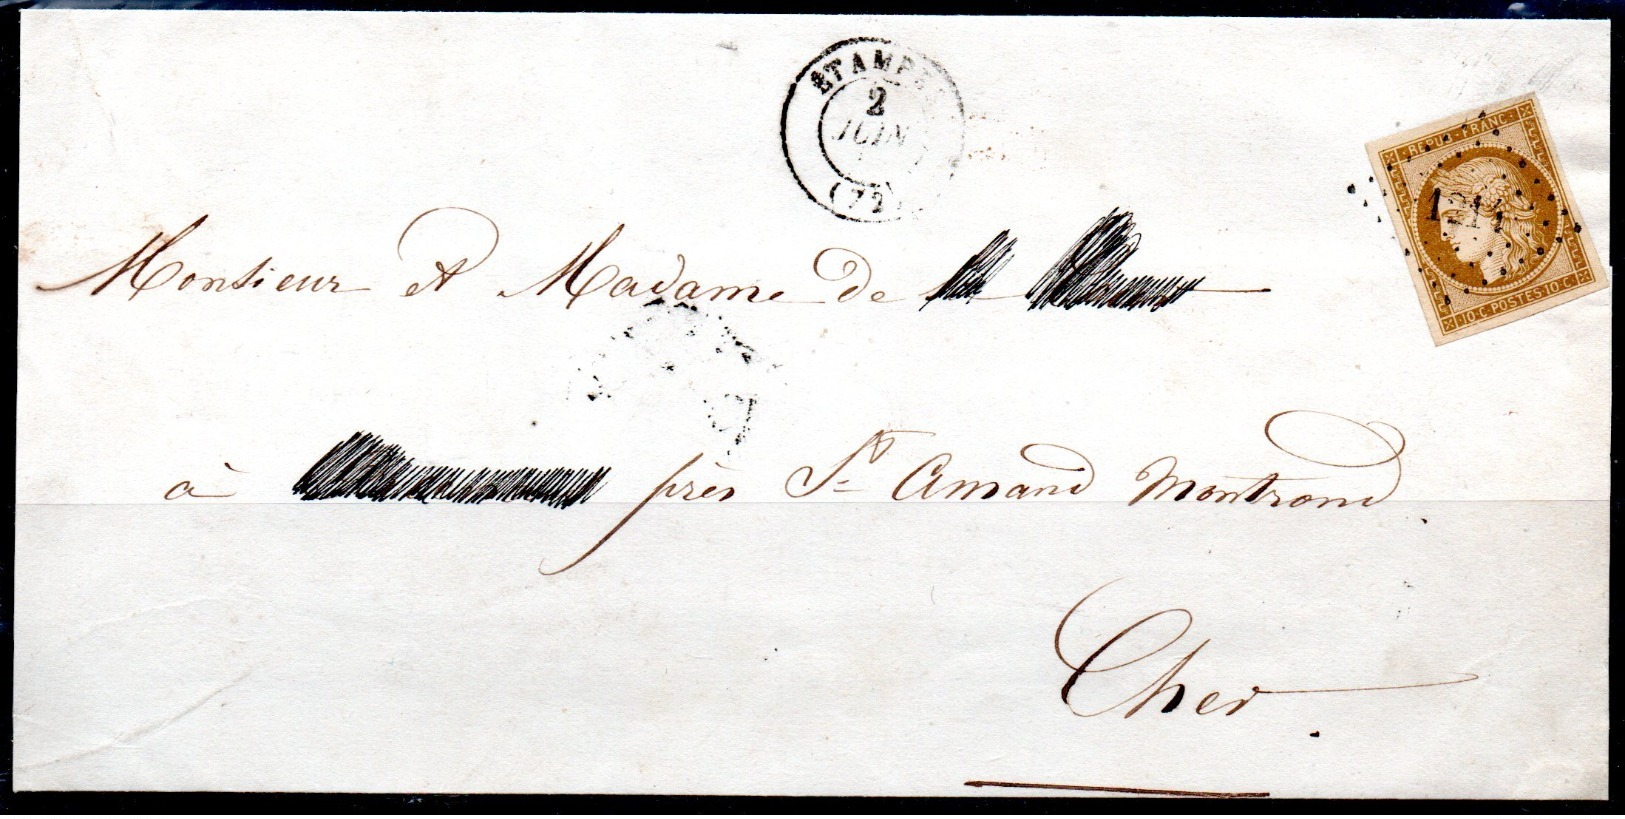 ÉTAMPES
2
JUIN
REPUB·FRANC·
10·C·POSTES·10·C·
Monsieur et Madame de
à près St Amand Montrond.
Cher.